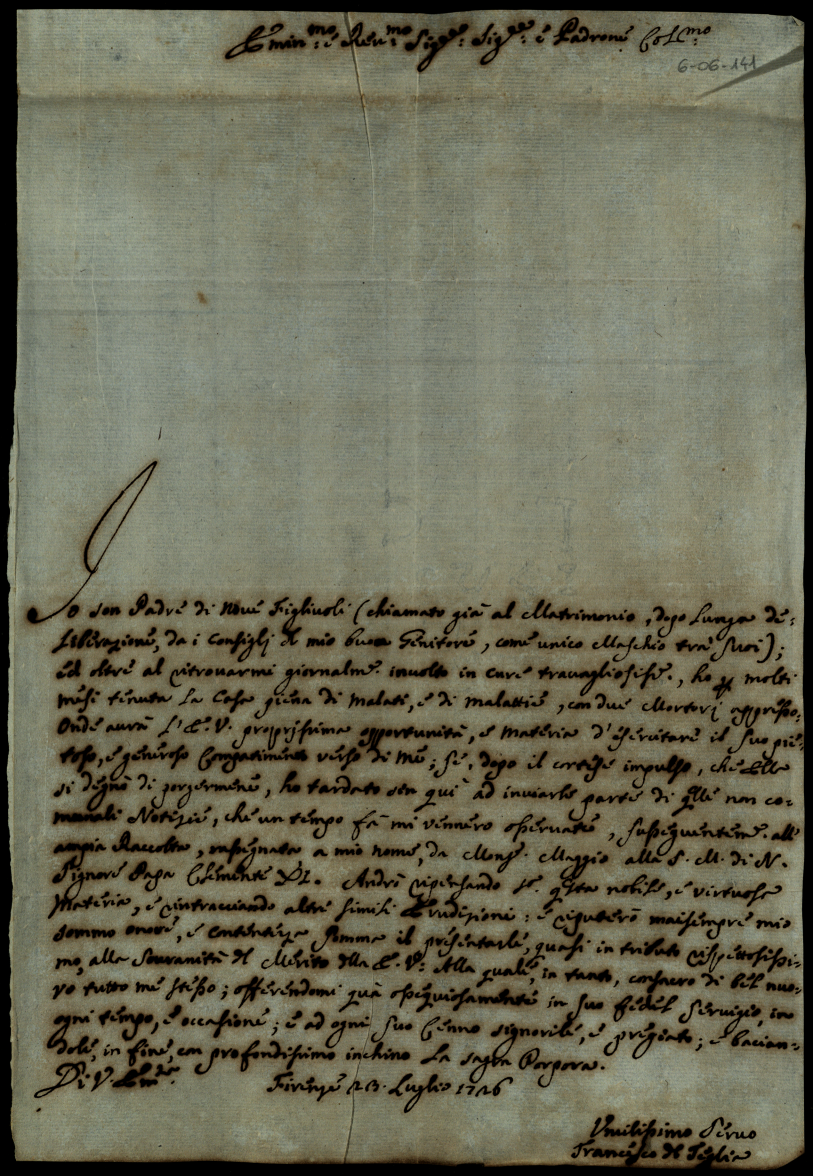 Emin.mo e Rev.mo Sig.re Sig.re e Padrone Col.mo
6-06-141
Io son Padre di Nove Figliuoli (chiamato già al Matrimonio, dopo lunga de=
liberazione, da i Consiglj del mio buon Genitore, come unico Maschio trà Suoi);
ed oltre al ritrovarmi giornalm.e involto in cure travagliosiss.e, ho p molti
mesi tenuta la Casa piena di Malati, e di malattie, con due Mortorj appresso.
Onde avrà l'E.V. proprissima opportunità, e materia d'esercitare il suo pie=
toso, e generoso Compatimento verso di me; se, dopo il cortese impulso, che Ella
si degnò di porgermene, ho tardato sin quì ad inviarle parte di qlle non co=
munali Notizie, che un tempo fà mi vennero osservate, sussequentem.e all'
ampia Raccolta, rassegnata a mio nome, da Mons.r Maggio alla S. M. di N.
Signore Papa Clemente XI. Andrò ripensando s.a qsta nobile, e virtuosa
Materia, e rintracciando altre simili Erudizioni: e reputerò maisempre mio
sommo onore, e contentezza somma il presentarle, quasi in tributo rispettosissi=
mo, alla Sovranità del Merito dlla E.V: Alla quale, in tanto, consacro di bel nuo=
vo tutto me stesso; offerendomi quà ossequiosamente in suo fedel servigio, in
ogni tempo, e occasione; e ad ogni suo Cenno signorile, e pregiato; e bacian=
dole, in fine, con profondissimo inchino la sagra Porpora.
Di V. Em.za Firenze 23. Luglio 1726
Umilissimo Servo
Francesco del Teglia